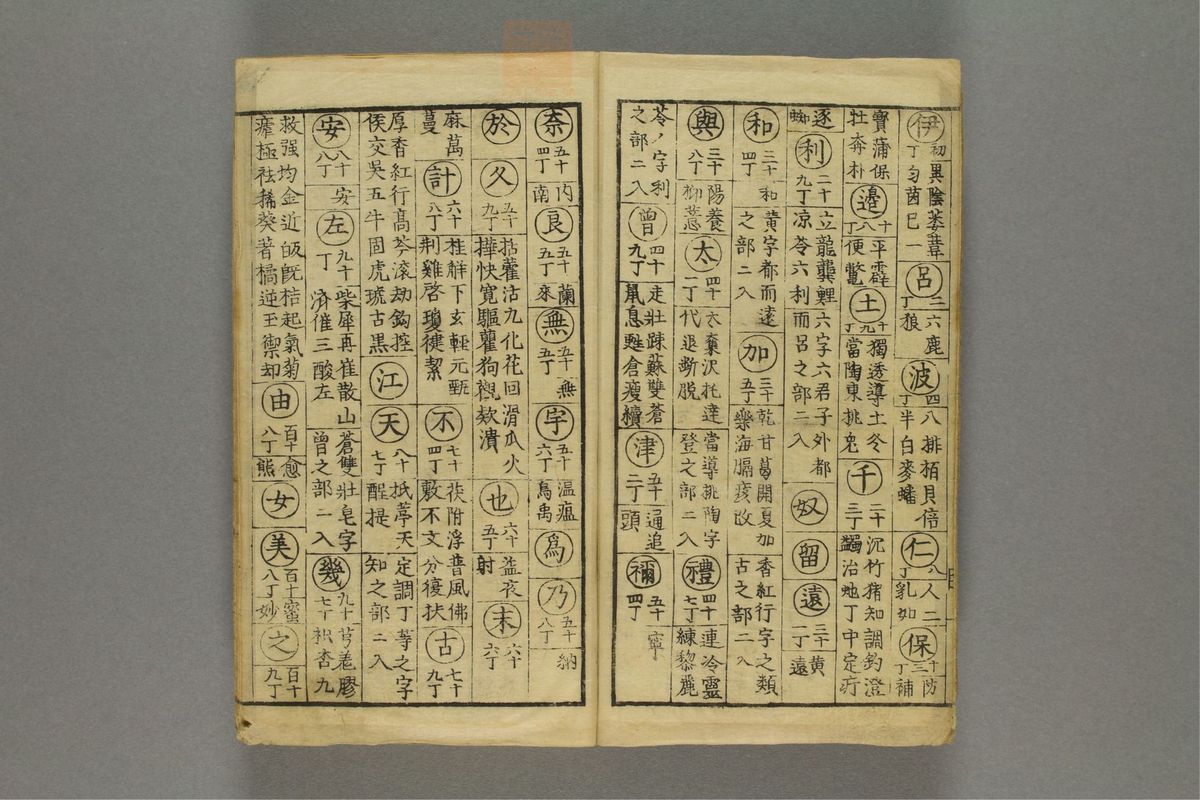 伊 初丁 異陰蔞葦 匀茵巳一 呂 三丁 六鹿 狼 波 四丁 八排栢貝倍 半白麥蟠 仁 八丁 人二 乳如 保 十三丁 防 補
寳蒲保 牡奔朴 邉 十八丁 平霹 便鼈 土 十九丁 獨透導土冬 當陶東桃兎 千 二十三丁 沉竹猪知調釣澄 治虵丁中定疔
逐 蜘 利 二十九丁 立龍龔鯉六字六君子外都 凉苓六利而呂之部二入 奴 留 遠 三十丁 黄 遠
和 三十四丁 和黄字都而遠 之部二入 加 三十五丁 乾甘葛開夏加香紅行字之類 藥海膈痎改古之部二入
與 三十八丁 陽養 柳薏 太 四十一丁 太棗沢托達當導桃陶字 代追断脱登之部二入 禮 四十七丁 連冷靈 練黎麗
苓ノ字利 之部二入 曽 四十九丁 走壯踈蘇雙蒼 鼠息甦倉瘦續 津 五十二丁 通追 頭 禰 五十四丁 寧
奈 五十四丁 内 南 良 五十五丁 蘭 來 無 五十五丁 無 宇 五十六丁 温瘟 烏禹 爲 乃 五十八丁 納
於 久 五十九丁 括藿沽九化花回滑瓜火 快寛驅驩狗覌欵潰 也 六十五丁 益夜 射 末 六十六丁
麻萬 蔓 計 六十八丁 桂觧下玄軽元甄 荆雞啓瓊犍潔 不 七十四丁 茯附浮普風佛 敷不文分復扶 古 七十九丁
厚香紅行髙苓滚劫鈎控 侯交吳五牛固虎琥古黒 江 天 八十七丁 抵葶天定調丁等之字 醒提知之部二入
安 八十八丁 安 左 九十丁 柴犀再崔散山蒼雙壯皂字 済催三酸左曾之部二入 幾 九十七丁 芎羗膠 枳杏九
救强均金近皈既桔起氣菊 瘧極祛豨葵著橘逆玉禦却 由 百十八丁 愈 熊 女 美 百十八丁 蜜 妙 之 百十九丁